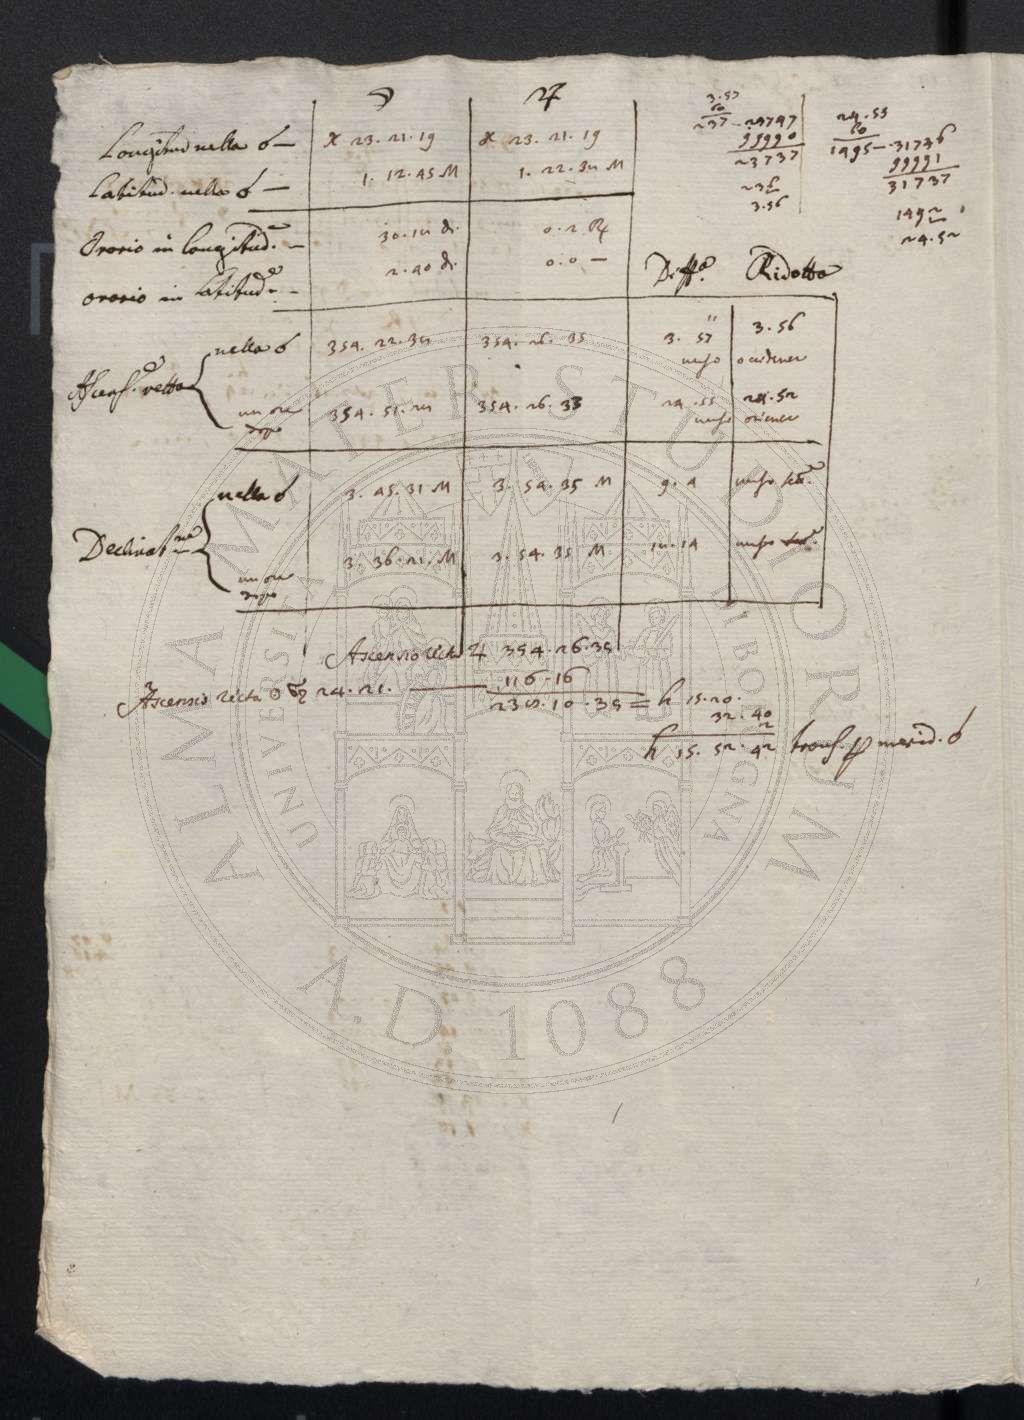 ☽ ♃
Longitud nella ☌ — ♓ 23. 21. 19 ♓ 23. 21. 19
Latitud. nella ☌ — 1. 12. 45 M 1. 22. M
Orario in Longitud.e — 30. di. 0. 2 R
orario in Latitud.e - 2. 40 di. 0. 0 —
3. 57
60
237 — 23747
99990
23737
236
3.56
24. 55
60
1495 — 31746
99991
31737
1492
24. 52
Diff.a Ridotta
Ascens.e retta
nella ☌ 354. 22. 354. 26. 35 3. 57" 3. 56
verso occidente
un ora dopo 354. 51. 354. 26. 33 24. 55 24. 52
verso oriente
Declinat.ne
nella ☌ 3. 45. 31 M 3. 54. 35 M 9. 4 verso
un ora dopo 3. 36. 21. M 3. 54. 35 M. 14 verso
Ascensio recta ♃ 354. 26. 35
Ascensio recta ☉ 24. 21. — 116. 16
10. 35 = h 15. 20.
32. 40
2
h 15. 52. 42 trans. p merid. ☌
ALMA MATER STUDIORUM
UNIVERSITÀ DI BOLOGNA
A.D. 1088